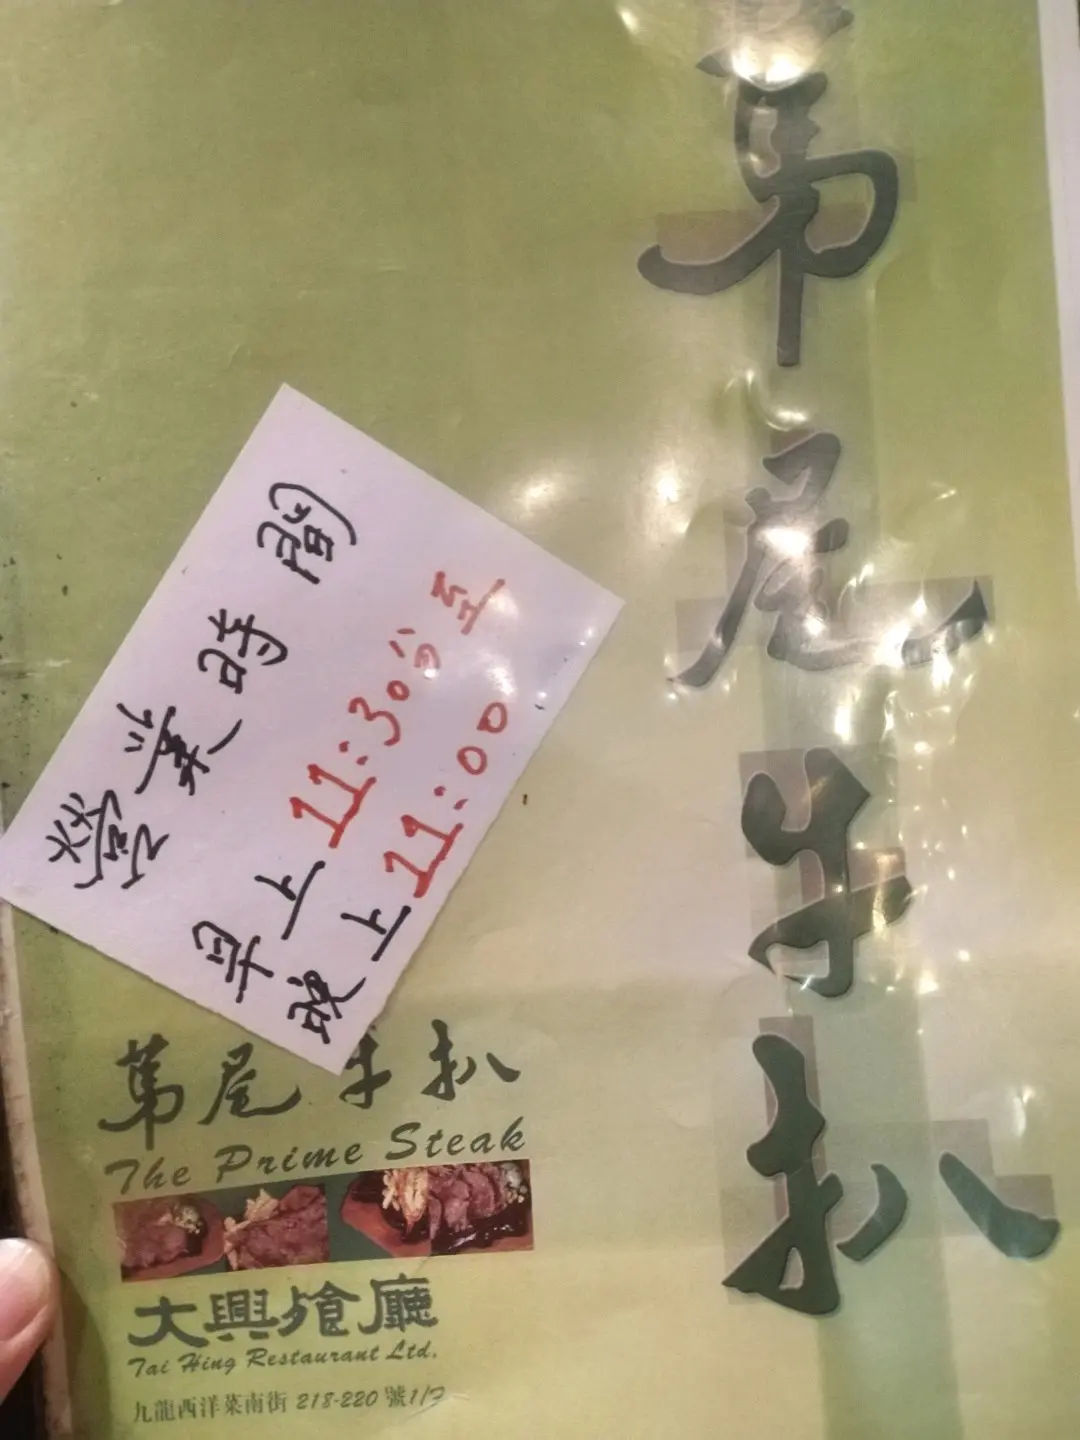 萬尾牛扒
營業時間
早上11:30分至
晚上11:00
萬尾牛扒
The Prime Steak
大興餐廳
Tai Hing Restaurant Ltd.
九龍西洋菜南街 218-220 號1/F